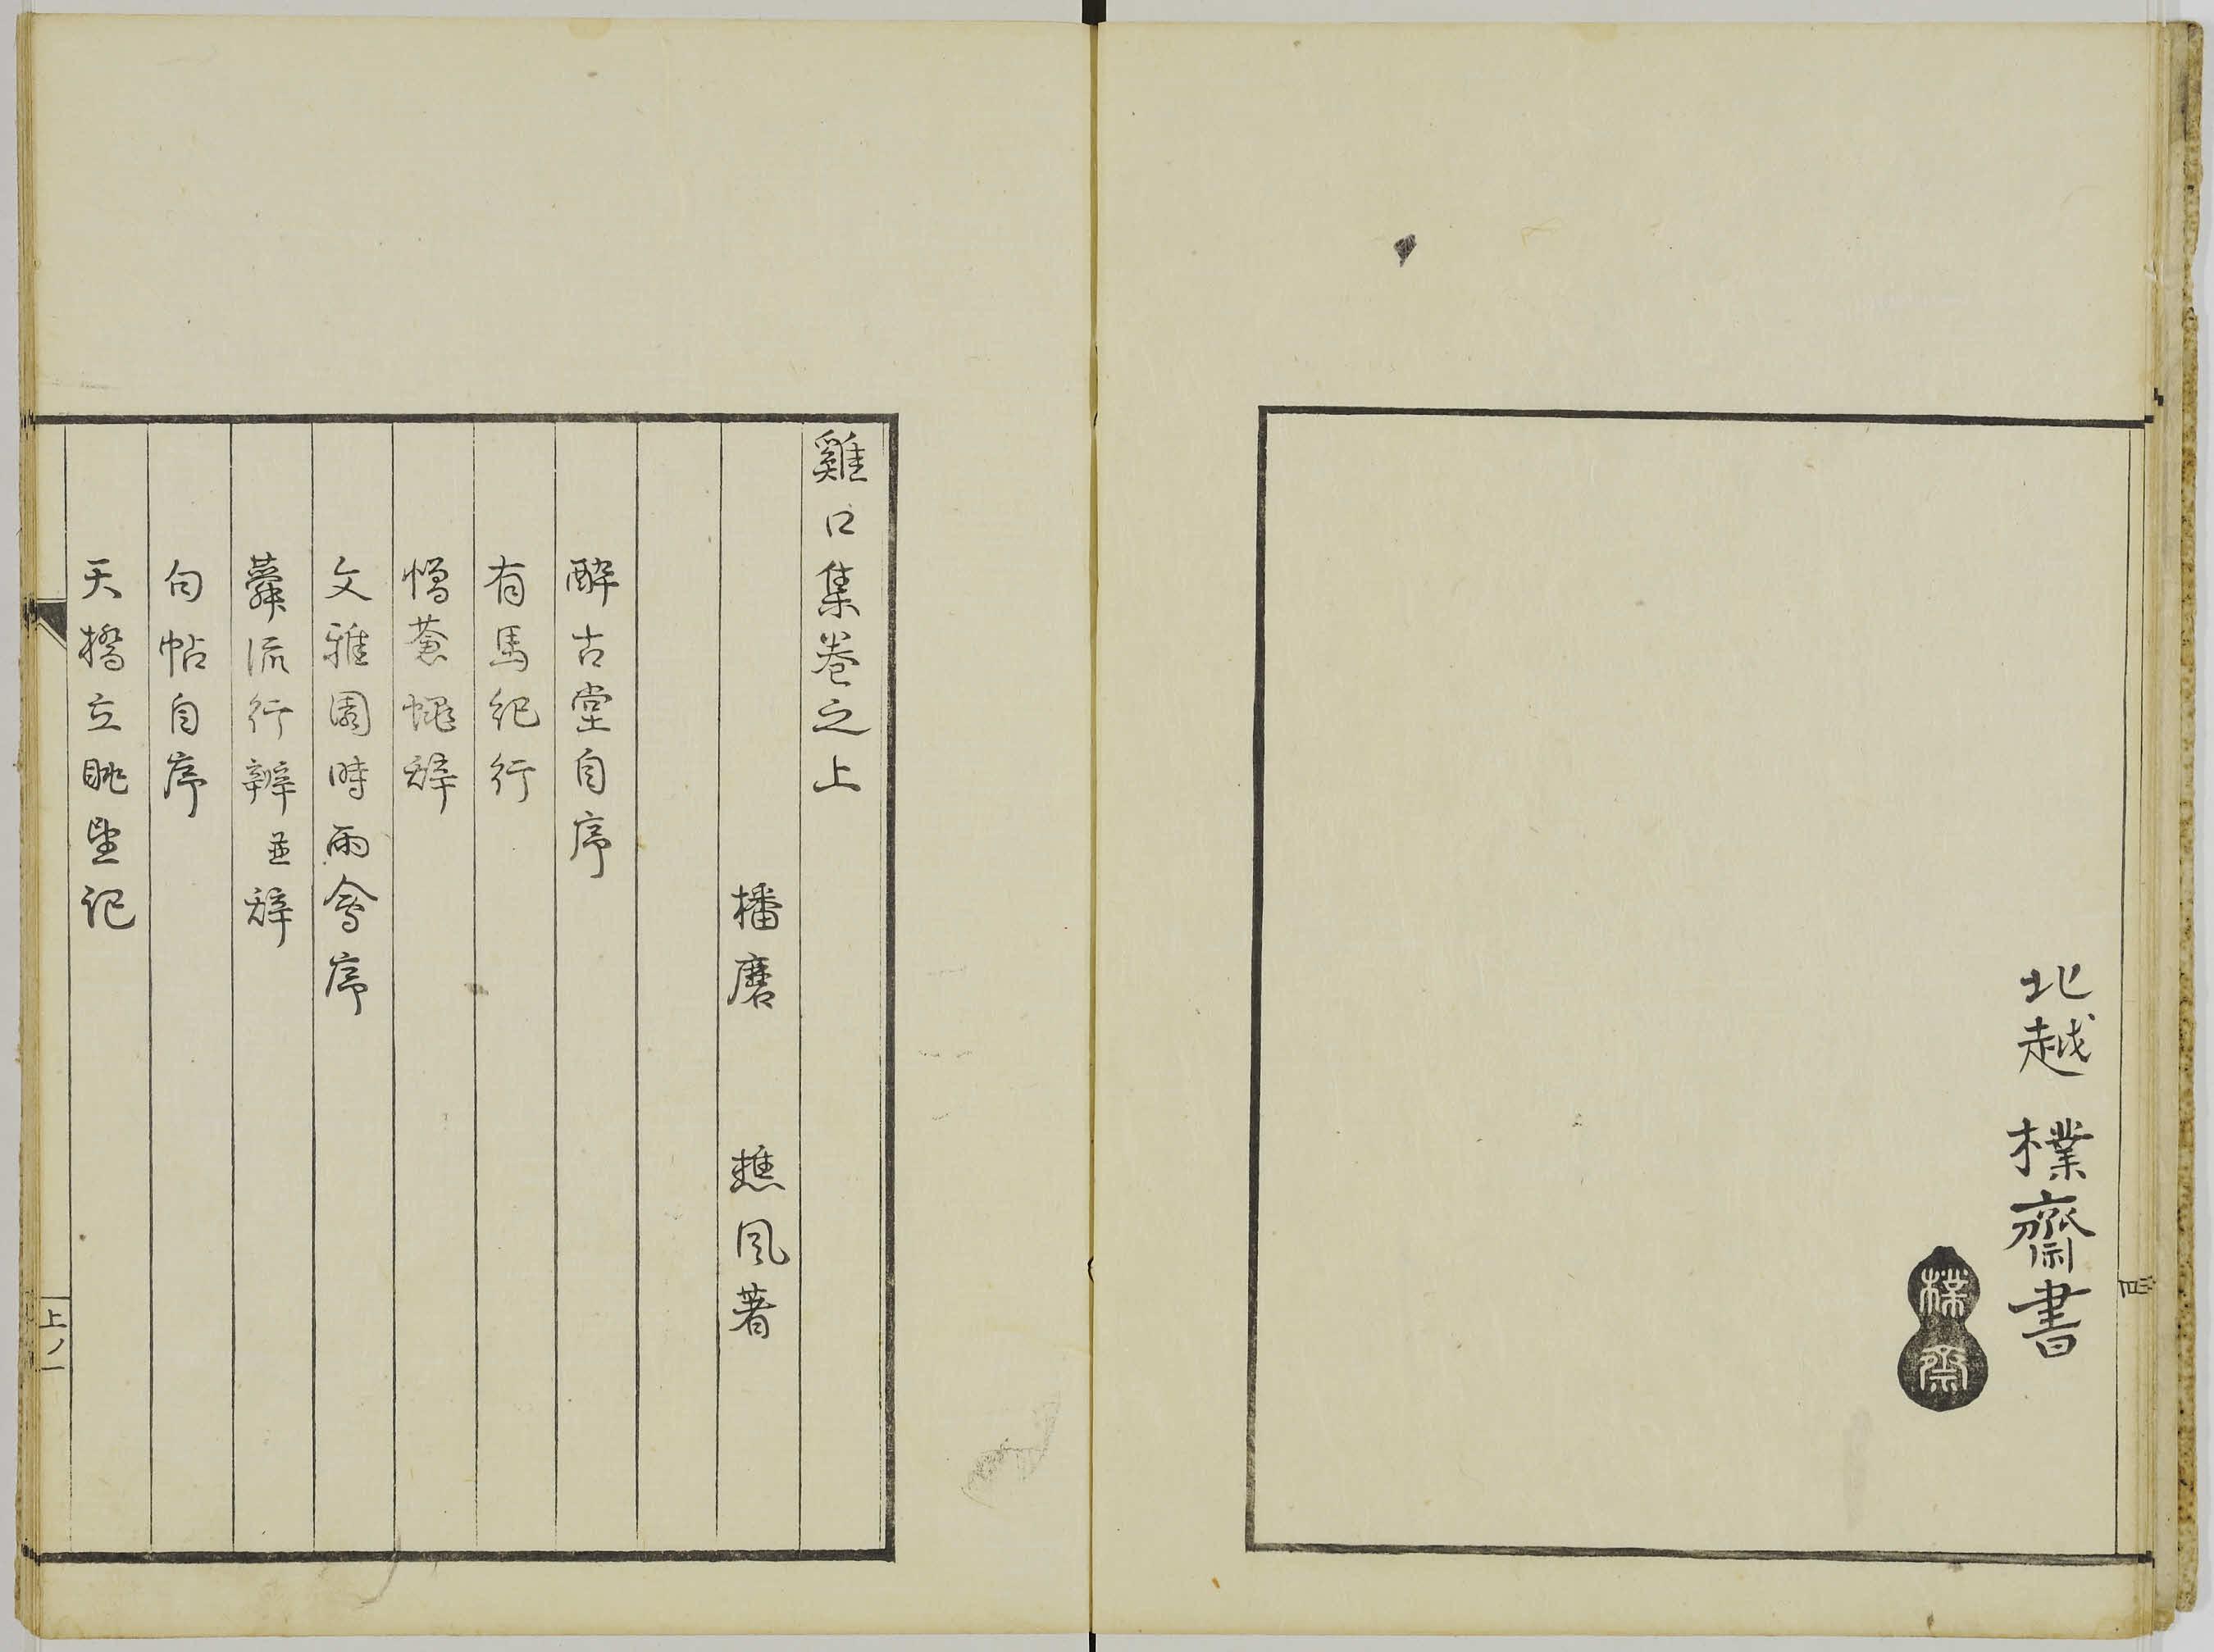 北越 樸齋書
樸齋
雞口集卷之上
播磨 樵風著
醉古堂自序
有馬紀行
憎蒼蠅辭
文雅園時雨會序
蕣流行辨並辭
句帖自序
天橋立眺望記
上ノ一